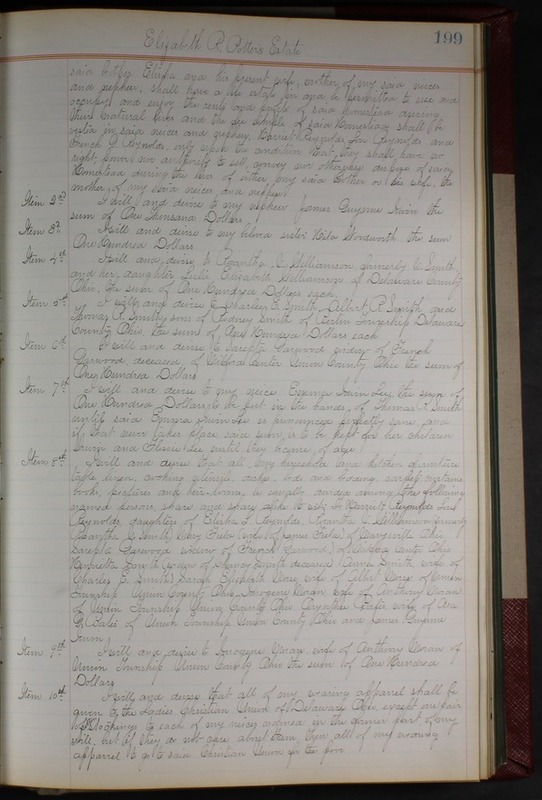 Elizabeth R. Potter's Estate
199
said brother Elisha and his present wife, mother of my said nieces
and nephew, shall have a life estate in and be permitted to use and
occupy and enjoy the rents and profits of said homestead during
their natural lives and the fee simple of said Homestead shall be
vested in said nieces and nephew, Harriet Reynolds and
Reynolds only upon the condition that they shall have no
right, power or authority to sell, convey or otherwise dispose of said
Homestead during the life of either my said brother or his wife, the
mother of my said nieces and nephew.
Item 2nd I will and devise to my nephew James Guyome Irwin the
sum of One Thousand Dollars.
Item 3rd I will and devise to my beloved sister Woodworth the sum
One Hundred Dollars
Item 4th I will and devise to C. Williamson formerly C. Smith
and her daughter Elizabeth Williamson of Delaware County
Ohio, the sum of One Hundred Dollars each.
Item 5th I will and devise to Charles S. Smith, Albert P. Smith and
Thomas R. Smith, sons of Rodney Smith of Berlin Township Delaware
County Ohio, the sum of One Hundred Dollars each
Item 6th I will and devise to Sarepta Garwood widow of French
Garwood deceased, of Milford Center Union County Ohio the sum of
One Hundred Dollars
Item 7th I will and devise to my niece Emma Irwin Lee the sum of
One Hundred Dollars, to be put in the hands of Thomas R. Smith
until said Emma Irwin Lee is pronounced perfectly sane, and
if that never takes place said sum is to be kept for her children
Irwin and Lee until they become of age.
Item 8th I will and desire that all my household and kitchen furniture
table linen, cooking utensils, dishes, beds and bedding, carpets, curtains
books, pictures and heir-looms, be equally divided among the following
named persons, share and share alike to wit: Harriet Reynolds
Reynolds, daughters of Elisha L. Reynolds, C. Williamson formerly
C. Smith, Mary Field (wife of James Field) of Marysville Ohio,
Sarepta Garwood (widow of French Garwood) of Milford Center Ohio
Henrietta Smith (widow of Smith deceased) Smith, wife of
Charles S. Smith, Sarah Elizabeth wife of Albert of Union
Township Union County Ohio, Imogene Moran, wife of Anthony Moran
of Union Township Union County Ohio, wife of Asa
of Union Township Union County Ohio and James Guyome
Irwin.
Item 9th I will and devise to Imogene Moran wife of Anthony Moran of
Union Township Union County Ohio the sum of One Hundred
Dollars
Item 10th I will and desire that all of my wearing apparel shall be
given to the Ladies Christian Union of Delaware Ohio, except one pair
of Stockings to each of my nieces in the former part of my
will, but if they do not care about them, then all of my wearing
apparel to go to said Christian Union for the poor